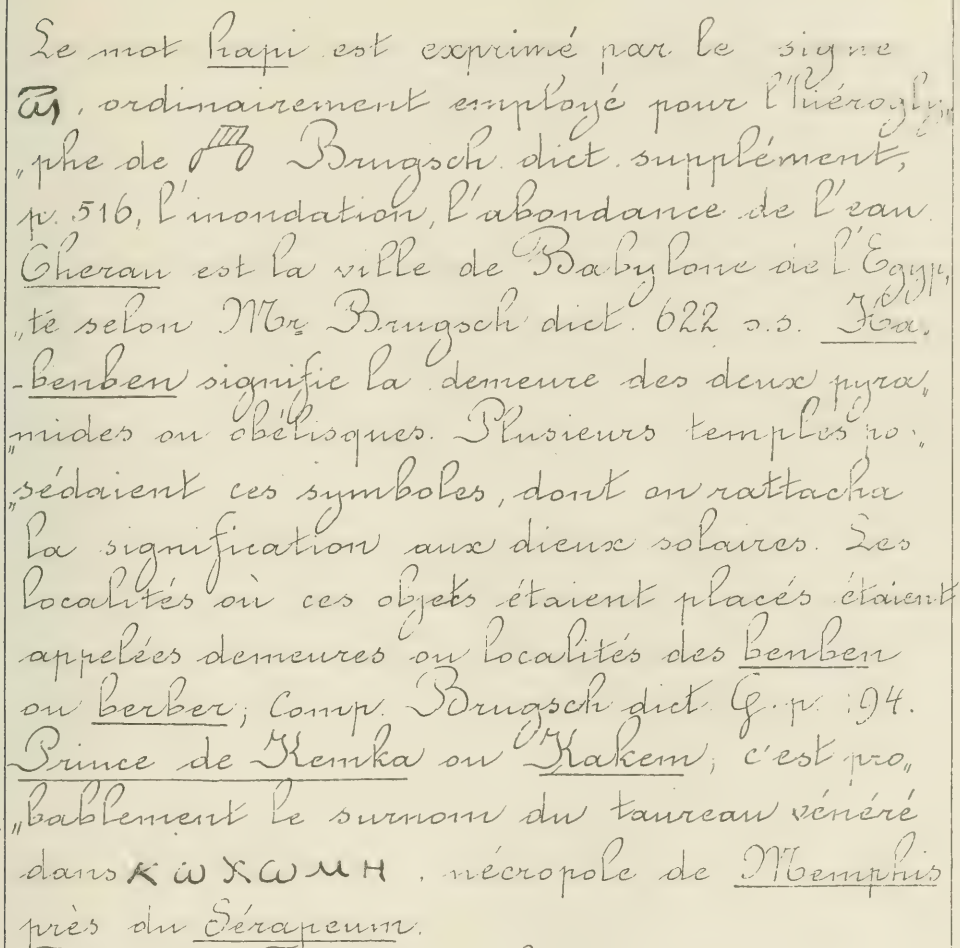 Le mot hapi est exprimé par le signe
, ordinairement employé pour l'hiérogly„
„phe de Brugsch dict. supplément,
p. 516, l'inondation, l'abondance de l'eau.
Cherau est la ville de Babylone de l'Egyp„
„te selon Mr. Brugsch dict. 622 s.s. Ha.
-benben signifie la demeure des deux pyra„
„mides ou obélisques. Plusieurs temples po„
„sédaient ces symboles, dont on rattacha
la signification aux dieux solaires. Les
localités où ces objets étaient placés étaient
appelées demeures ou localités des benben
ou berber; Comp. Brugsch dict G. p. 194.
Prince de Kemka ou Kakem, c'est pro„
„bablement le surnom du taureau vénéré
dans ⲕⲱⲭⲱⲙⲏ, nécropole de Memphis
près du Sérapeum.